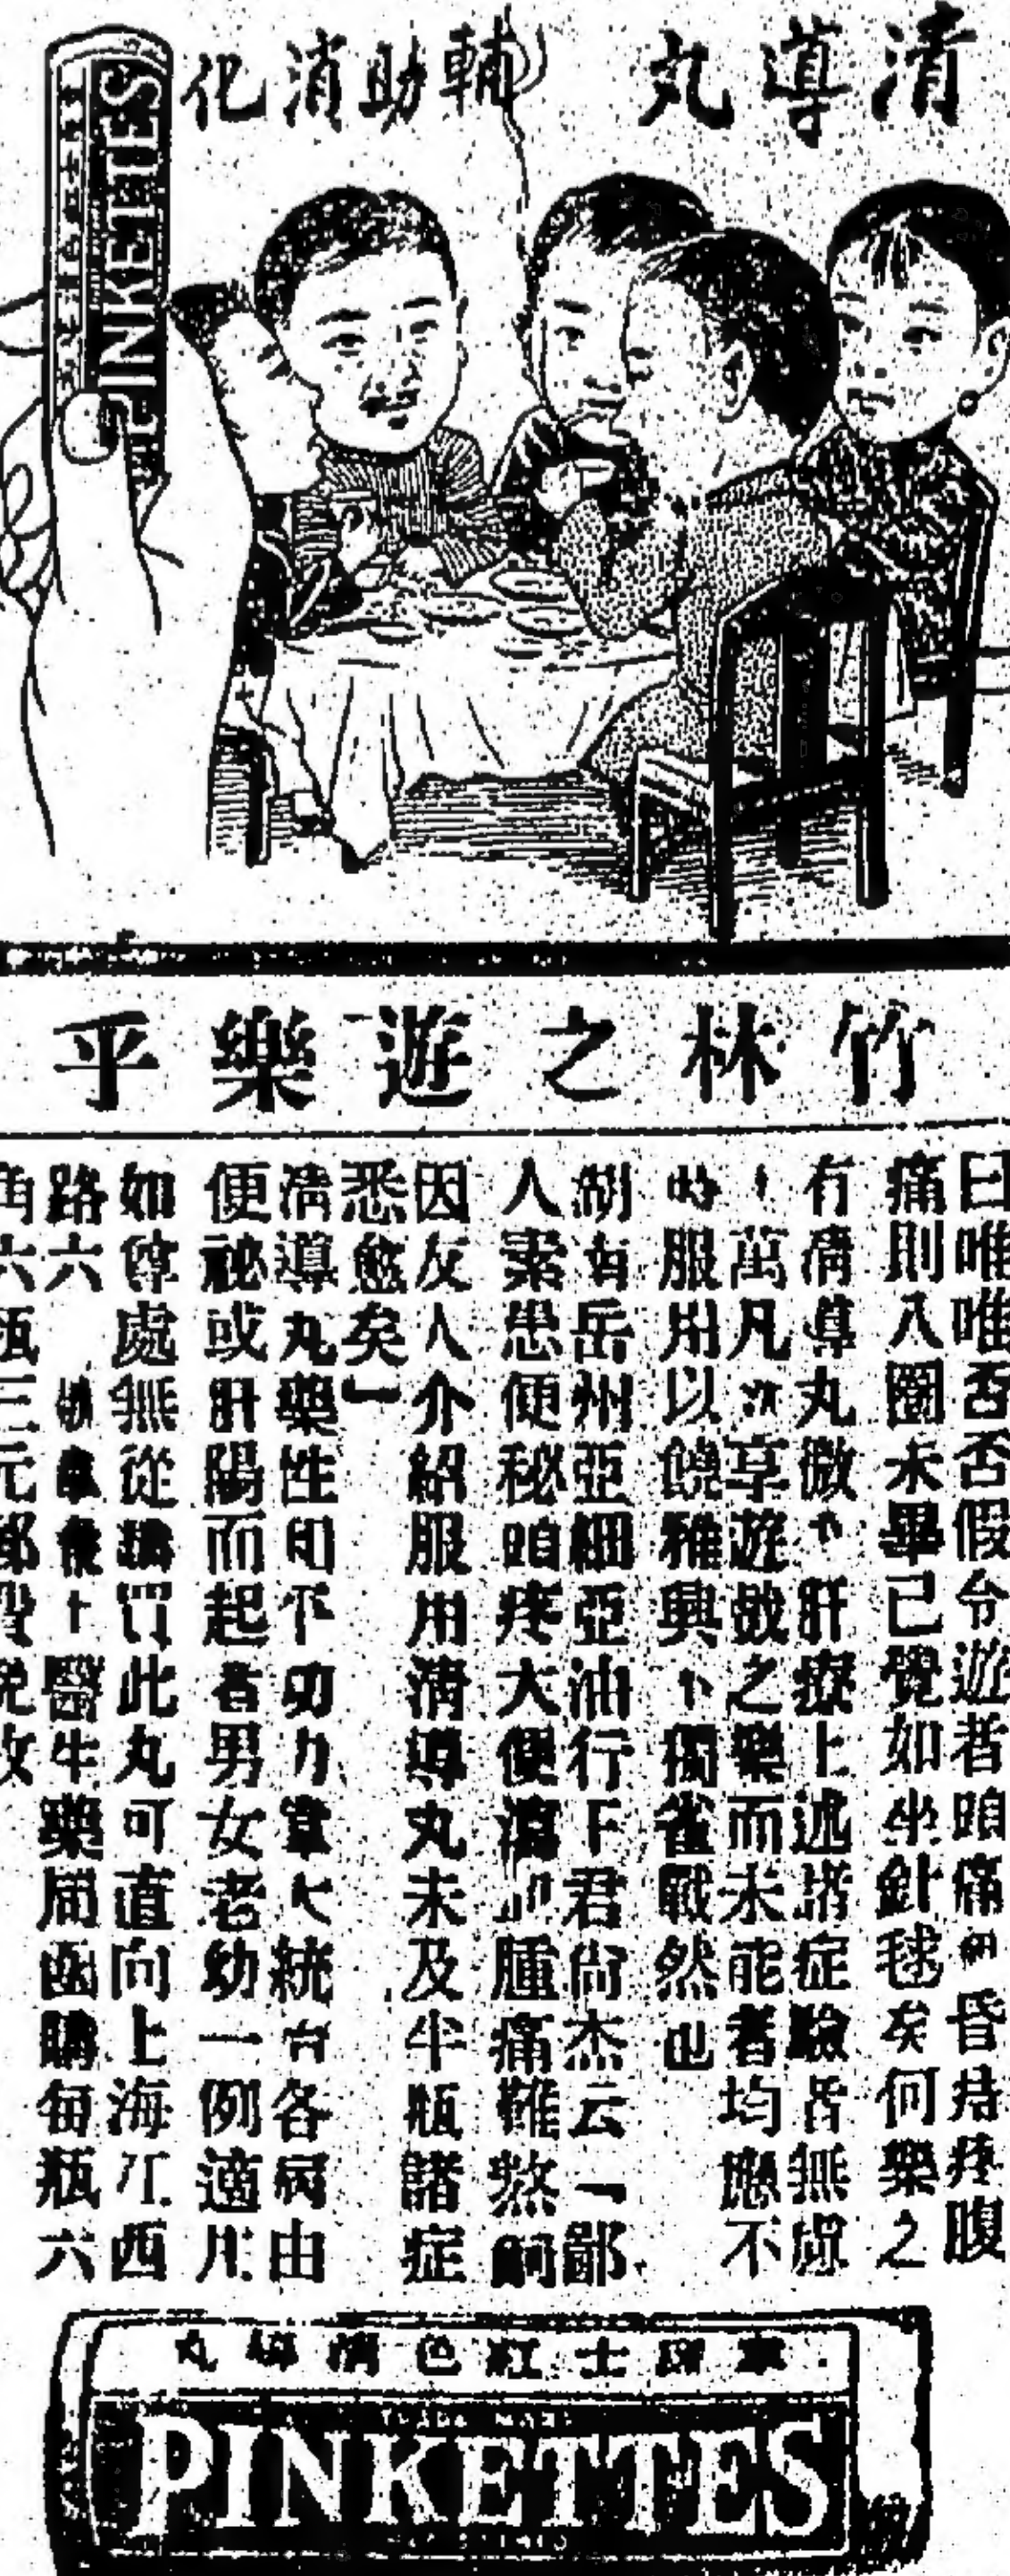 清導丸 輔助消化
PINKETTES
竹林之遊樂乎
曰唯唯否否假令遊者痛昏痔疼腹
痛則八圈未畢已覺如坐針矣何樂之
有清導丸微肝療上述諸症驗皆無慮
萬凡享遊戲之樂而未能者均應不
時服用以饒雅興不獨雀戰然也
湖南岳州亞細亞油行王君尚杰云「鄙
人素患便秘疼大便腫痛難熬嗣
因友人介紹服用清導丸未及半瓶諸症
悉愈矣」
清導丸藥性和平功力偉大統治各病由
便祕或肝陽而起者男女老幼一例適用
如尊處無從購買此丸可直向上海江西
路六號韋廉士醫生藥局函購每瓶六
角六瓶三元郵費免收
韋廉士紅色清導丸
PINKETTES